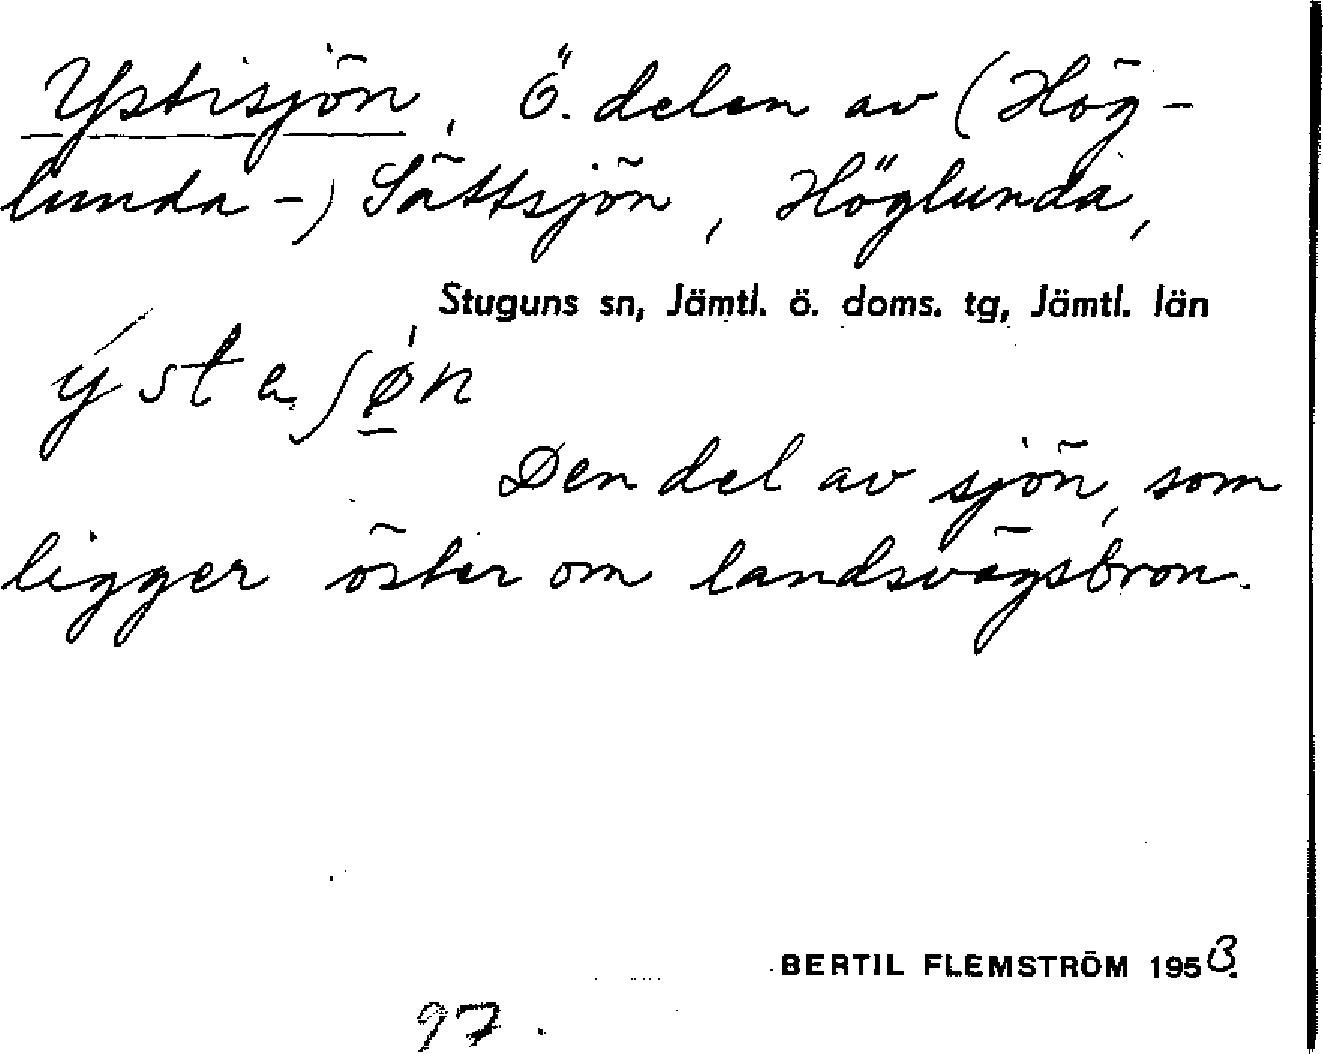 Ystisjön, Ö. delen av (Hög-
lunda-) Sättsjön, Höglunda,
Stuguns sn, Jämtl. ö. doms. tg, Jämtl. län
Den del av sjön, som
ligger öster om landsvägsbron.
BERTIL FLEMSTRÖM 195
97.